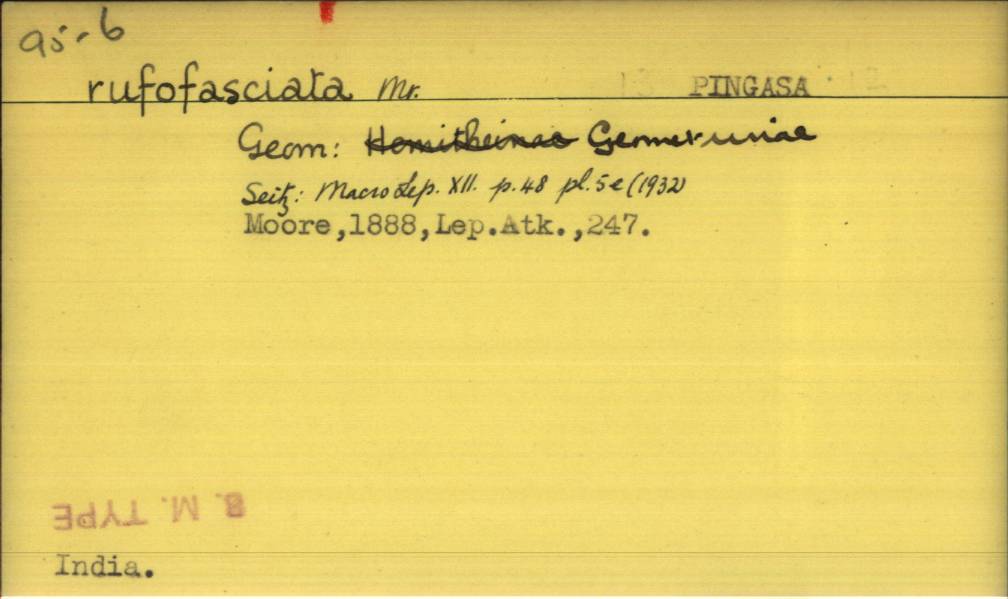 95-6
rufofasciata Mr. PINGASA
Geom: Hemitheinae Geometrinae
Seitz: Macro Lep. XII. p.48 pl.5e (1932)
Moore,1888,Lep.Atk.,247.
B. M. TYPE
India.